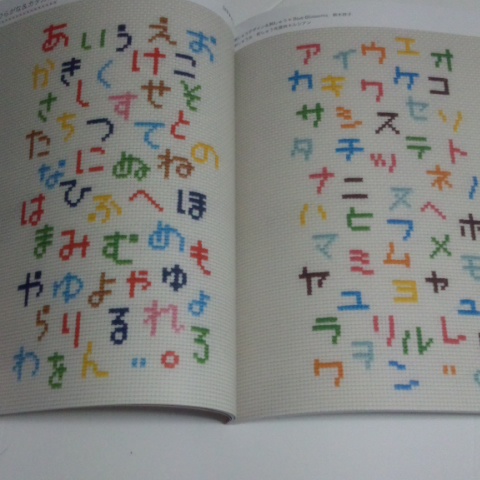 あいうえお
かきくけこ
さしすせそ
たちつてと
なにぬねの
はひふへほ
まみむめも
やゆよゃゅょ
らりるれろ
わをん゛。
アイウエオ
カキクケコ
サシスセソ
タチツテト
ナニヌネ
ハヒフヘホ
マミムメモ
ヤユヨャ
ラリルレ
ワヲン゛